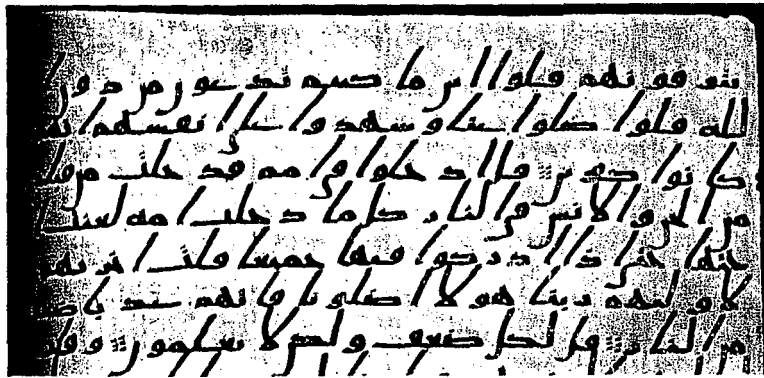 يتوفونهم قلوا اين ما كنتم تدعون من دون ا
لله قلوا ضلوا عنا وشهدوا علي انفسهم
كانوا كفرين قل ادخلوا في امم قد خلت من
من الجن والانس في النار كلما دخلت امه لعنت ا
ختها حتي اذا ادركوا فيها جميعا قلت اخريهم
لاوليهم ربنا هولا اضلونا فاتهم عذابا
من النار قل لكل ضعف ولكن لا تعلمون